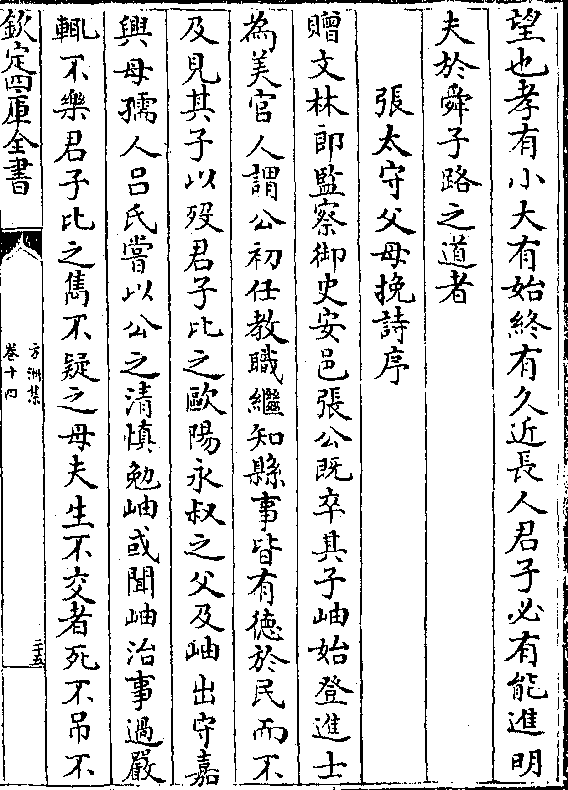 望也孝有小大有始終有久近長人君子必有能進明
夫於舜子路之道者
張太守父母挽詩序
贈文林郎監察御史安邑張公既卒其子岫始登進士
為美官人謂公初任教職繼知縣事皆有德於民而不
及見其子以歿君子比之歐陽永叔之父及岫出守嘉
興母孺人呂氏嘗以公之清慎勉岫或聞岫治事過嚴
輒不樂君子比之雋不疑之母夫生不交者死不吊不
欽定四庫全書
方洲集
卷十四
二十五